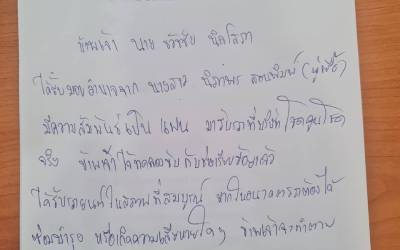 ข้าพเจ้า นาย ธวัชชัย
ได้รับมอบอำนาจจาก นางสาว (ผู้ซื้อ)
มีความสัมพันธ์เป็น แฟน มารับรถที่บริษัท โชคคูนโชค
จริง ข้าพเจ้าได้ทดลองขับ เรียบร้อยแล้ว
ได้รับรถยนต์ในสภาพที่สมบูรณ์ หากในอนาคตรถต้องได้
ซ่อมบำรุง หรือเกิดความเสียหายใดๆ ข้าพเจ้าจะทำตาม